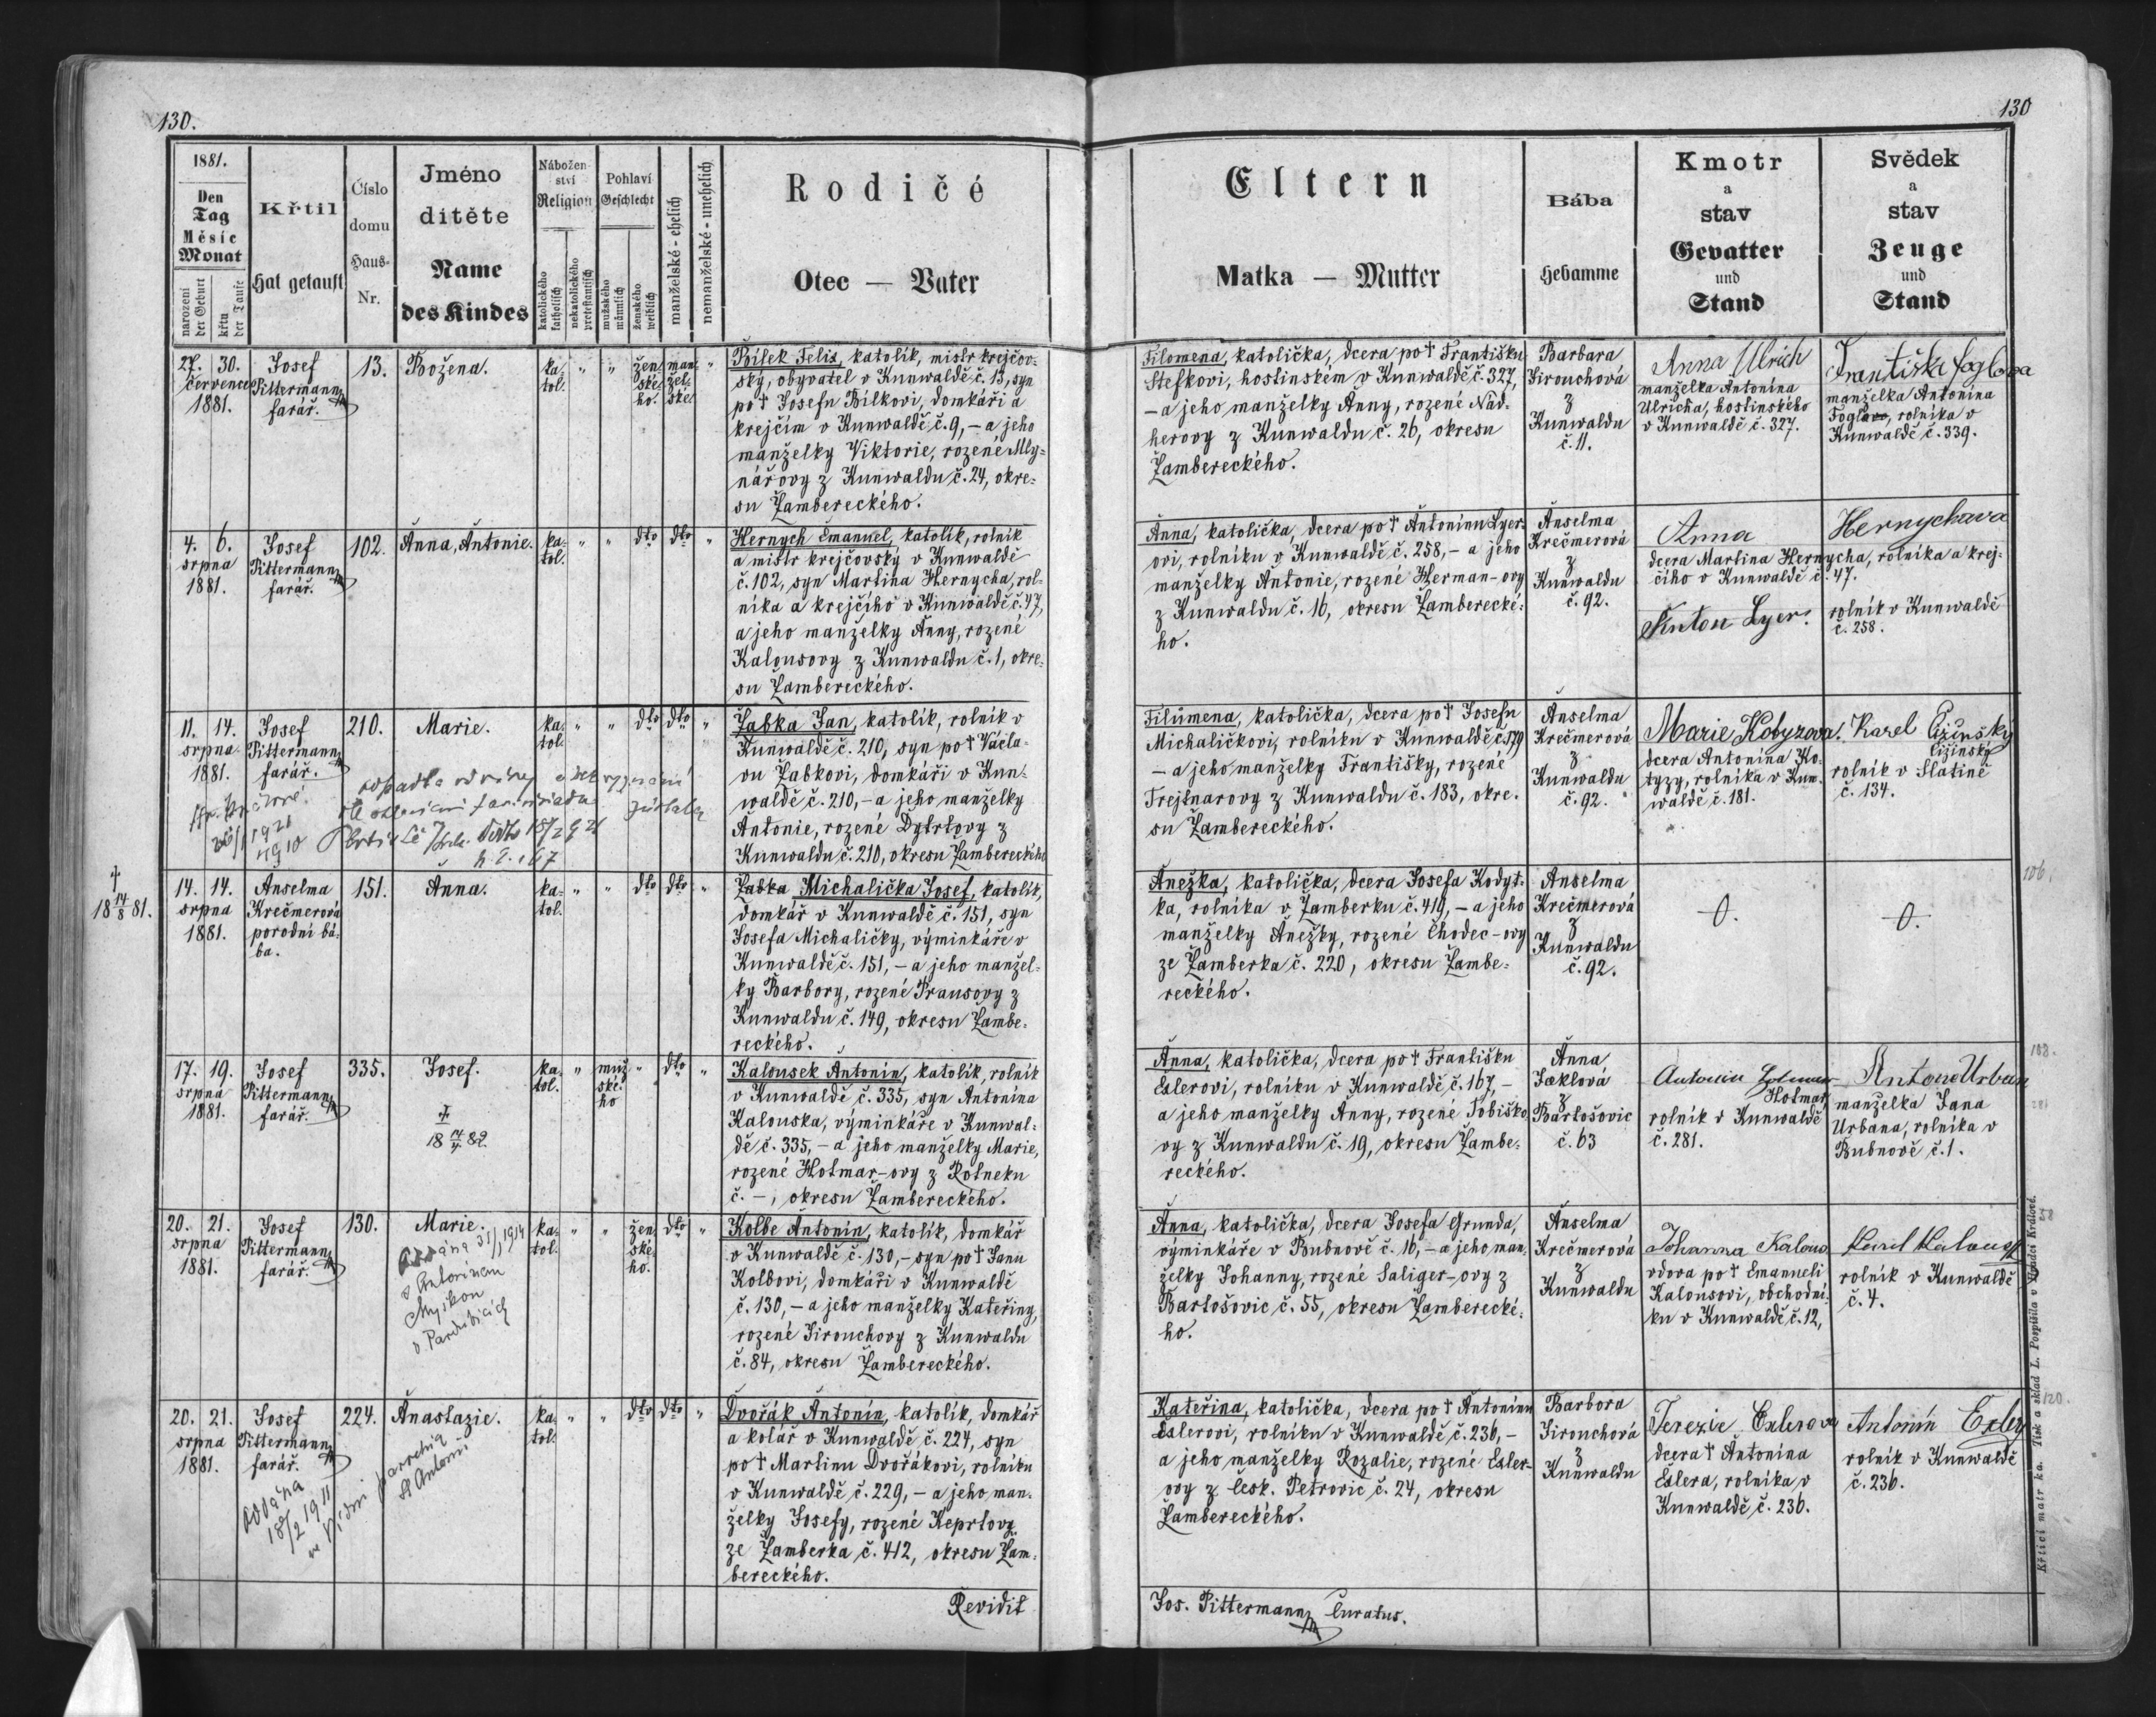 130.
130
1881.
Den
Tag
Měsíc
Monat
narození
der Geburt
křtu
der Taufe
Křtil
Hat getauft
Číslo
domu
Haus-
Nr.
Jméno
dítěte
Name
des Kindes
Nábožen-
ství
Religion
katolického
katholisch
nekatolického
protestantisch
Pohlaví
Geschlecht
mužského
männlich
ženského
weiblich
manželské - ehelich
nemanželské - unehelich
Rodičé
Otec — Vater
Eltern
Matka — Mutter
Bába
Hebamme
Kmotr
a
stav
Gevatter
und
Stand
Svědek
a
stav
Zeuge
und
Stand
27. 30.
července
1881.
Josef
Pittermann
farář.
13.
Božena.
ka-
tol.
" "
žen-
ské-
ho.
man-
žel-
ské.
"
Bílek Felix, katolík, mistr krejčov-
ský, obyvatel v Kunwaldě č. 13, syn
po † Josefu Bílkovi, domkáři a
krejčím v Kunwaldě č. 9, – a jeho
manželky Viktorie, rozené Mly-
nářovy z Kunwaldu č. 24, okre-
su Žambereckého.
Filomena, katolička, dcera po † Františku
Štefkovi, hostinském v Kunwaldě č. 327,
– a jeho manželky Anny, rozené Nád-
herovy z Kunwaldu č. 26, okresu
Žambereckého.
Barbara
Jirouchová
z
Kunwaldu
č. 11.
Anna Ulrich
manželka Antonína
Ulricha, hostinského
v Kunwaldě č. 327.
Františka Foglova
manželka Antonína
Fogla, rolníka v
Kunwaldě č. 339.
4. 6.
srpna
1881.
Josef
Pittermann
farář.
102.
Anna, Antonie.
ka-
tol.
" "
dto dto "
Hernych Emanuel, katolík, rolník
a mistr krejčovský v Kunwaldě
č. 102, syn Martina Hernycha, rol-
níka a krejčího v Kunwaldě č. 47,
a jeho manželky Anny, rozené
Kalousovy z Kunwaldu č. 1, okre-
su Žambereckého.
Anna, katolička, dcera po † Antonínu Lyer-
ovi, rolníku v Kunwaldě č. 258, – a jeho
manželky Antonie, rozené Herman-ovy
z Kunwaldu č. 16, okresu Žamberecké-
ho.
Anselma
Krečmerová
z
Kunwaldu
č. 92.
Anna Hernychava
dcera Martina Hernycha, rolníka a krej-
čího v Kunwaldě č. 47.
Anton Lyer.
rolník v Kunwaldě
č. 258.
11. 14.
srpna
1881.
Josef
Pittermann
farář.
210.
Marie.
ka-
tol.
" "
dto dto "
Žabka Jan, katolík, rolník v
Kunwaldě č. 210, syn po † Václa-
vu Žabkovi, domkáři v Kun-
waldě č. 210, – a jeho manželky
Antonie, rozené Dytrtovy z
Kunwaldu č. 210, okresu Žambereckého
odpadla od víry a bez vyznání
zůstala
Filomena, katolička, dcera po † Josefu
Michaličkovi, rolníku v Kunwaldě č. 179
– a jeho manželky Františky, rozené
Trejtnarovy z Kunwaldu č. 183, okre-
su Žambereckého.
Anselma
Krečmerová
z
Kunwaldu
č. 92.
Marie Kotyzova.
dcera Antonína Ko-
tyzy, rolníka v Kun-
waldě č. 181.
Karel Čižinský
Čižinský
rolník v Slatině
č. 134.
†
18 14/8 81.
14. 14.
srpna
1881.
Anselma
Krečmerová
porodní bá-
ba.
151.
Anna.
ka-
tol.
" "
dto dto "
Žabka Michalička Josef, katolík,
domkář v Kunwaldě č. 151, syn
Josefa Michaličky, výminkáře v
Kunwaldě č. 151, – a jeho manžel-
ky Barbory, rozené Prausovy z
Kunwaldu č. 149, okresu Žambe-
reckého.
Anežka, katolička, dcera Josefa Kodyt-
ka, rolníka v Žamberku č. 419, – a jeho
manželky Anežky, rozené Chodec-ovy
ze Žamberka č. 220, okresu Žambe-
reckého.
Anselma
Krečmerová
z
Kunwaldu
č. 92.
0.
0.
106.
17. 19.
srpna
1881.
Josef
Pittermann
farář.
335.
Josef.
ka-
tol.
"
muž-
ské-
ho
"
dto "
Kalousek Antonín, katolík, rolník
v Kunwaldě č. 335, syn Antonína
Kalouska, výminkáře v Kunwal-
dě č. 335, – a jeho manželky Marie,
rozené Hotmar-ovy z Rotneku
č. –, okresu Žambereckého.
Anna, katolička, dcera po † Františku
Eslerovi, rolníku v Kunwaldě č. 167, –
a jeho manželky Anny, rozené Tobiško-
vy z Kunwaldu č. 19, okresu Žambe-
reckého.
Anna
Jeklová
z
Bartošovic
č. 63
Antonin
Hotmar
rolník v Kunwaldě
č. 281.
Urban
manželka Jana
Urbana, rolníka v
Bubnově č. 1.
108.
281
20. 21.
srpna
1881.
Josef
Pittermann
farář.
130.
Marie.
Oddána 31/1 1914
s Antonínem
v Pardubicích
ka-
tol.
" "
žen-
ské-
ho.
dto "
Kolbe Antonín, katolík, domkář
v Kunwaldě č. 130, – syn po † Janu
Kolbovi, domkáři v Kunwaldě
č. 130, – a jeho manželky Kateřiny,
rozené Jirouchovy z Kunwaldu
č. 84, okresu Žambereckého.
Anna, katolička, dcera Josefa Grunda,
výminkáře v Bubnově č. 16, – a jeho man-
želky Johanny, rozené Saliger-ovy z
Bartošovic č. 55, okresu Žamberecké-
ho.
Anselma
Krečmerová
z
Kunwaldu
Johanna Kalous
vdova po † Emanueli
Kalousovi, obchodní-
ku v Kunwaldě č. 12,
Karel Kalous
rolník v Kunwaldě
č. 4.
20. 21.
srpna
1881.
Josef
Pittermann
farář.
224.
Anastazie.
oddána
18/2 1911
ve Vídni
St Antoni
ka-
tol.
" "
dto dto "
Dvořák Antonín, katolík, domkář
a kolář v Kunwaldě č. 224, syn
po † Martinu Dvořákovi, rolníku
v Kunwaldě č. 229, – a jeho man-
želky Josefy, rozené Keprtovy
ze Žamberka č. 412, okresu Žam-
bereckého.
Kateřina, katolička, dcera po † Antonínu
Eslerovi, rolníku v Kunwaldě č. 236, –
a jeho manželky Rozalie, rozené Esler-
ovy z česk. Petrovic č. 24, okresu
Žambereckého.
Barbora
Jirouchová
z
Kunwaldu
Terezie Exlerova
dcera † Antonína
Eslera, rolníka v
Kunwaldě č. 236.
Antonín Exler
rolník v Kunwaldě
č. 236.
120.
Revidit
Jos. Pittermann Curatus.
Křticí matrika. Tisk a sklad L. Pospíšila v Hradci Králové.